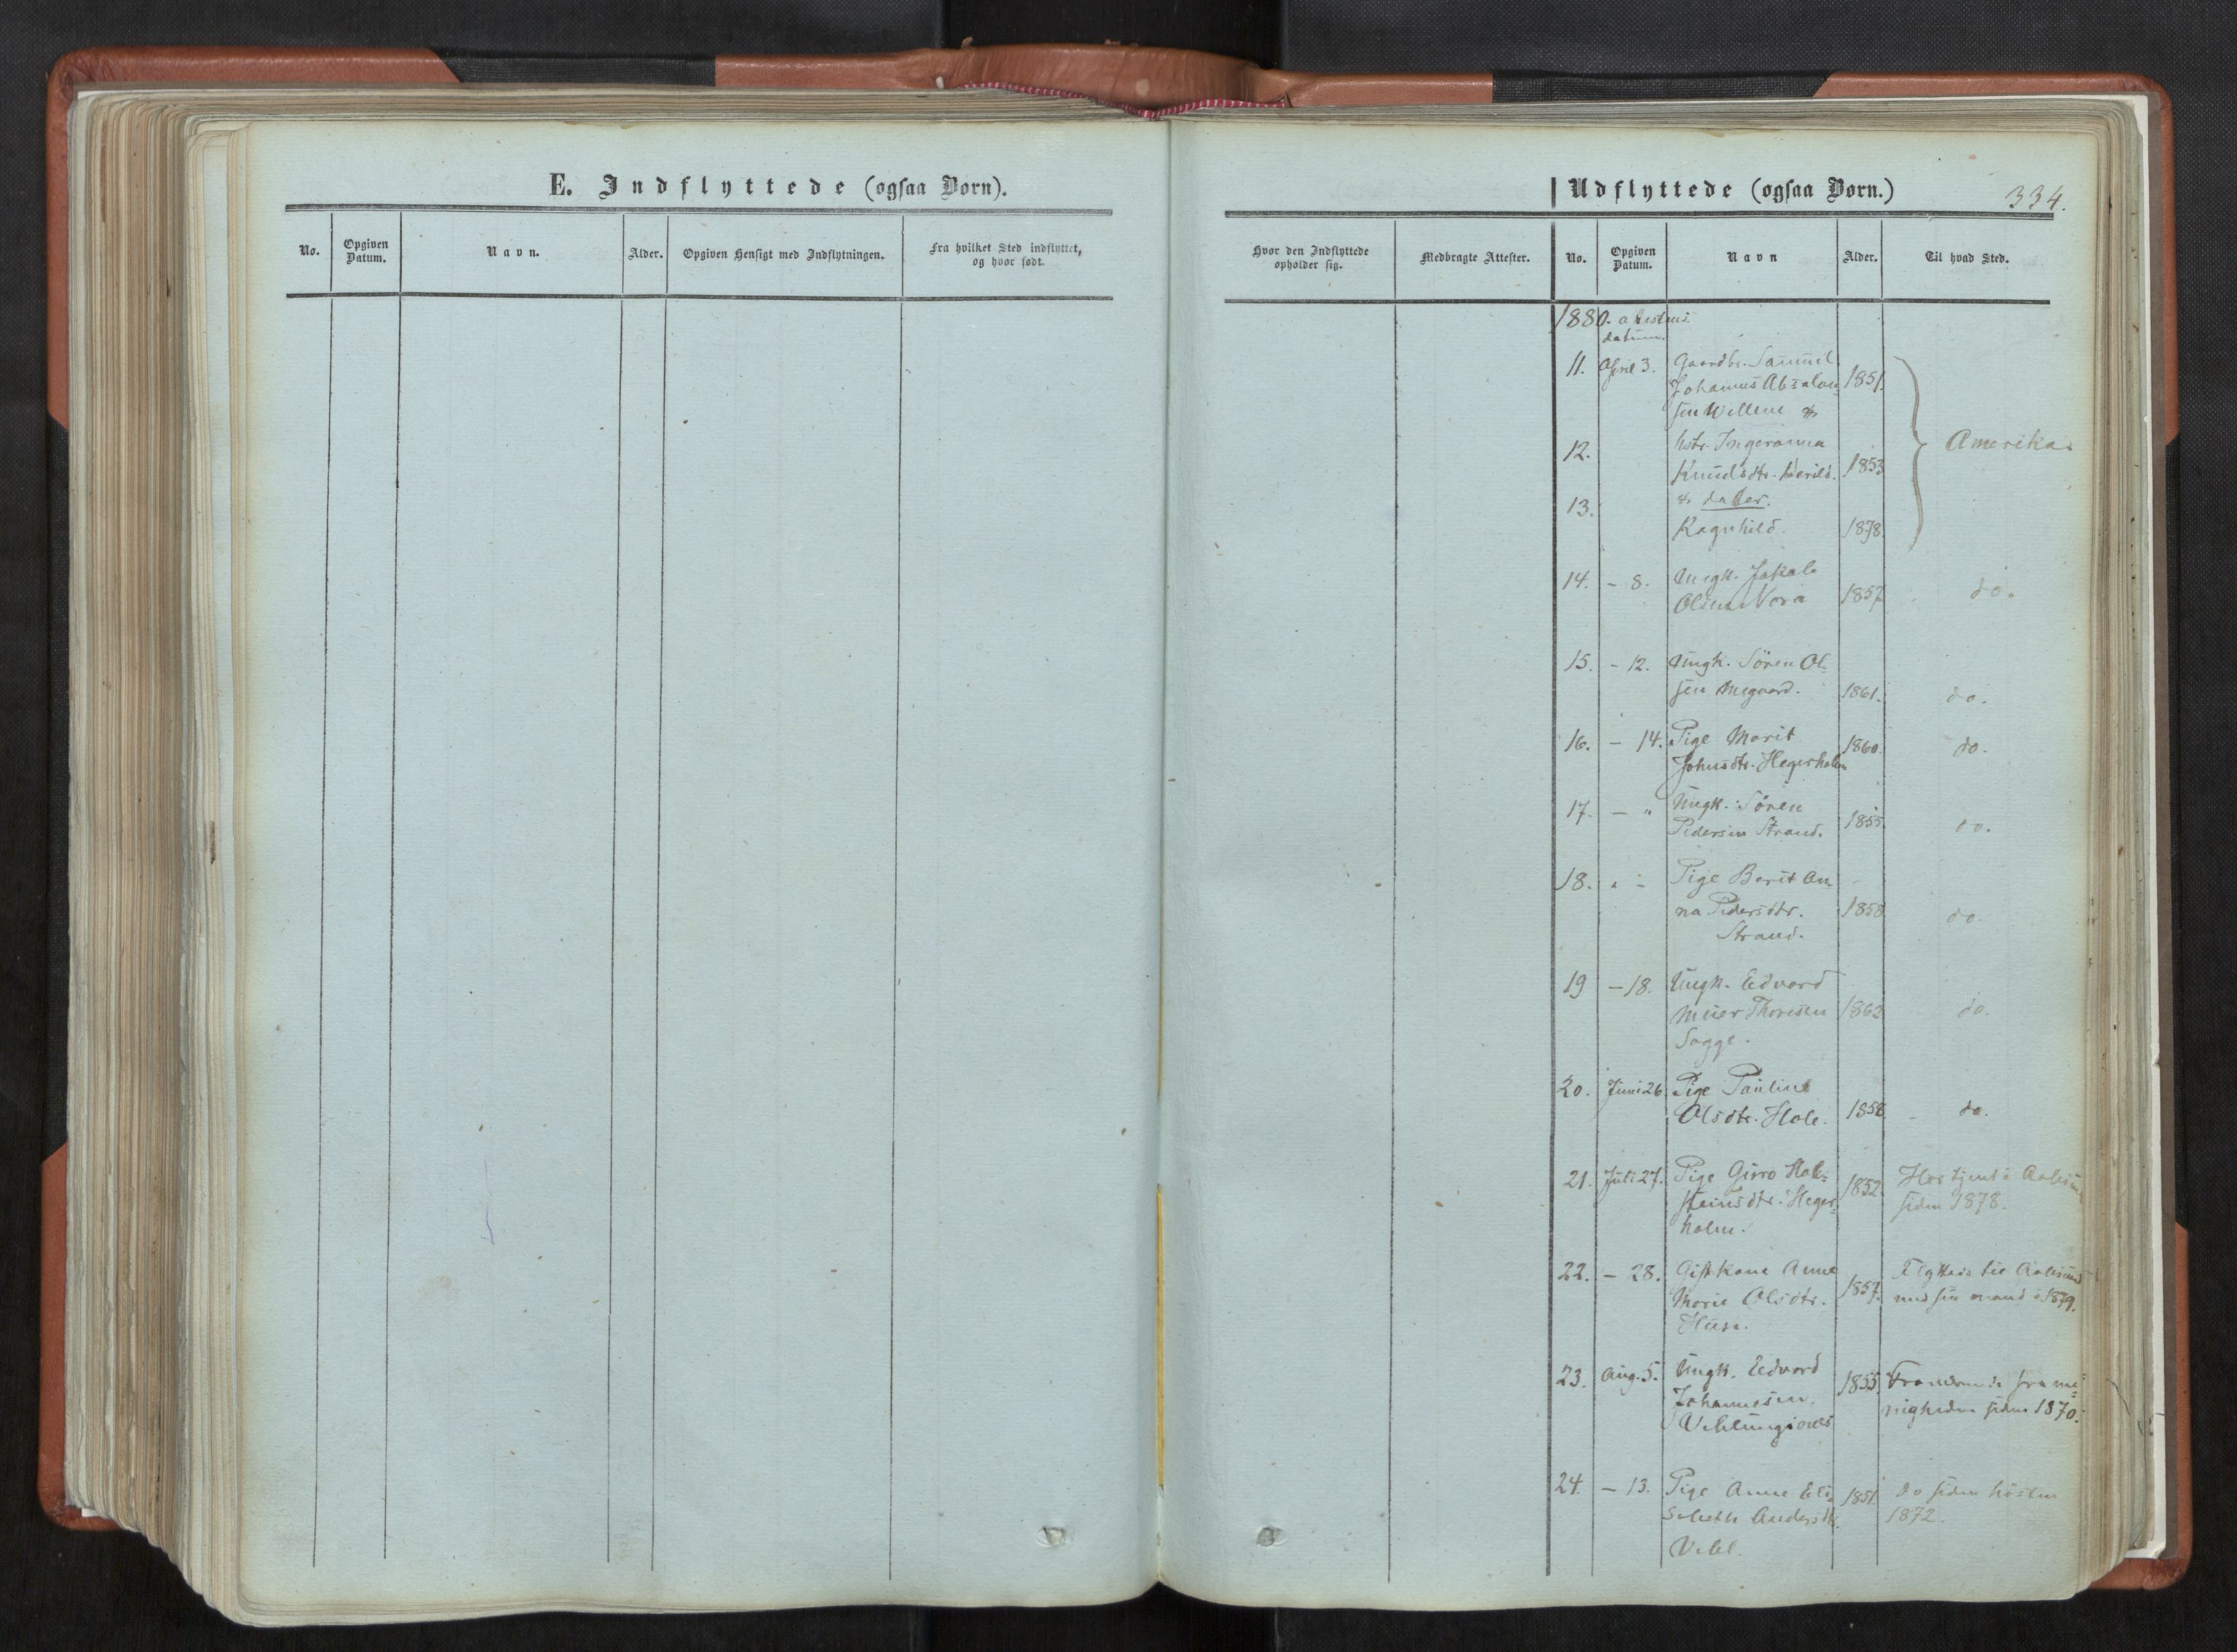 E. Indflyttede (ogsaa Børn).
No.
Opgiven Datum.
Navn.
Alder.
Opgiven Hensigt med Indflytningen.
Fra hvilket Sted indflyttet, og hvor født.
Udflyttede (ogsaa Børn.)
334.
Hvor den Indflyttede opholder sig.
Medbragte Attester.
No.
Opgiven Datum.
Navn
Alder.
Til hvad Sted.
1880. attestens
datum.
11. April 3. Gaardbr. Samuel
Johannes Absalon 1851.
sen &
12. hstr. Ingeranna Amerika.
Knudsdtr. 1853
13. & datter.
Ragnhild. 1878
14. - 8. Ungk. Jakob
Olsen Vora 1857 do.
15. - 12. Ungk. Sören Ol-
sen 1861. do.
16. - 14. Pige Marit 1860. do.
Johnsdtr. Hegerholm
17. - " Ungk. Sören
Pedersen Strand. 1855. do.
18. " - Pige Berit An-
na Pedersdtr. 1858 do.
Strand.
19 - 18. Ungk. Edvard
Thoresen 1862 do.
Sogge.
20. Juni 26. Pige Pauline
Olsdtr. Hole. 1858 do.
21. Juli 27. Pige Guro Hal- 1852. Har tjent i Aalesund
steinsdtr. Heger- siden 1878.
holm.
22. - 28. Gift Kone Anne 1857. Flyttede til Aalesund
Marie Olsdtr. med sin mand i 1879.
Huse.
23. Aug. 5. Ungk. Edvard 1855. Fraværende fra me-
Johannesen nigheden siden 1870.
Veblungsnes
24. - 13. Pige Anne Eli- 1851. do siden hösten
sabeth Andersdtr. 1872.
Vebl.